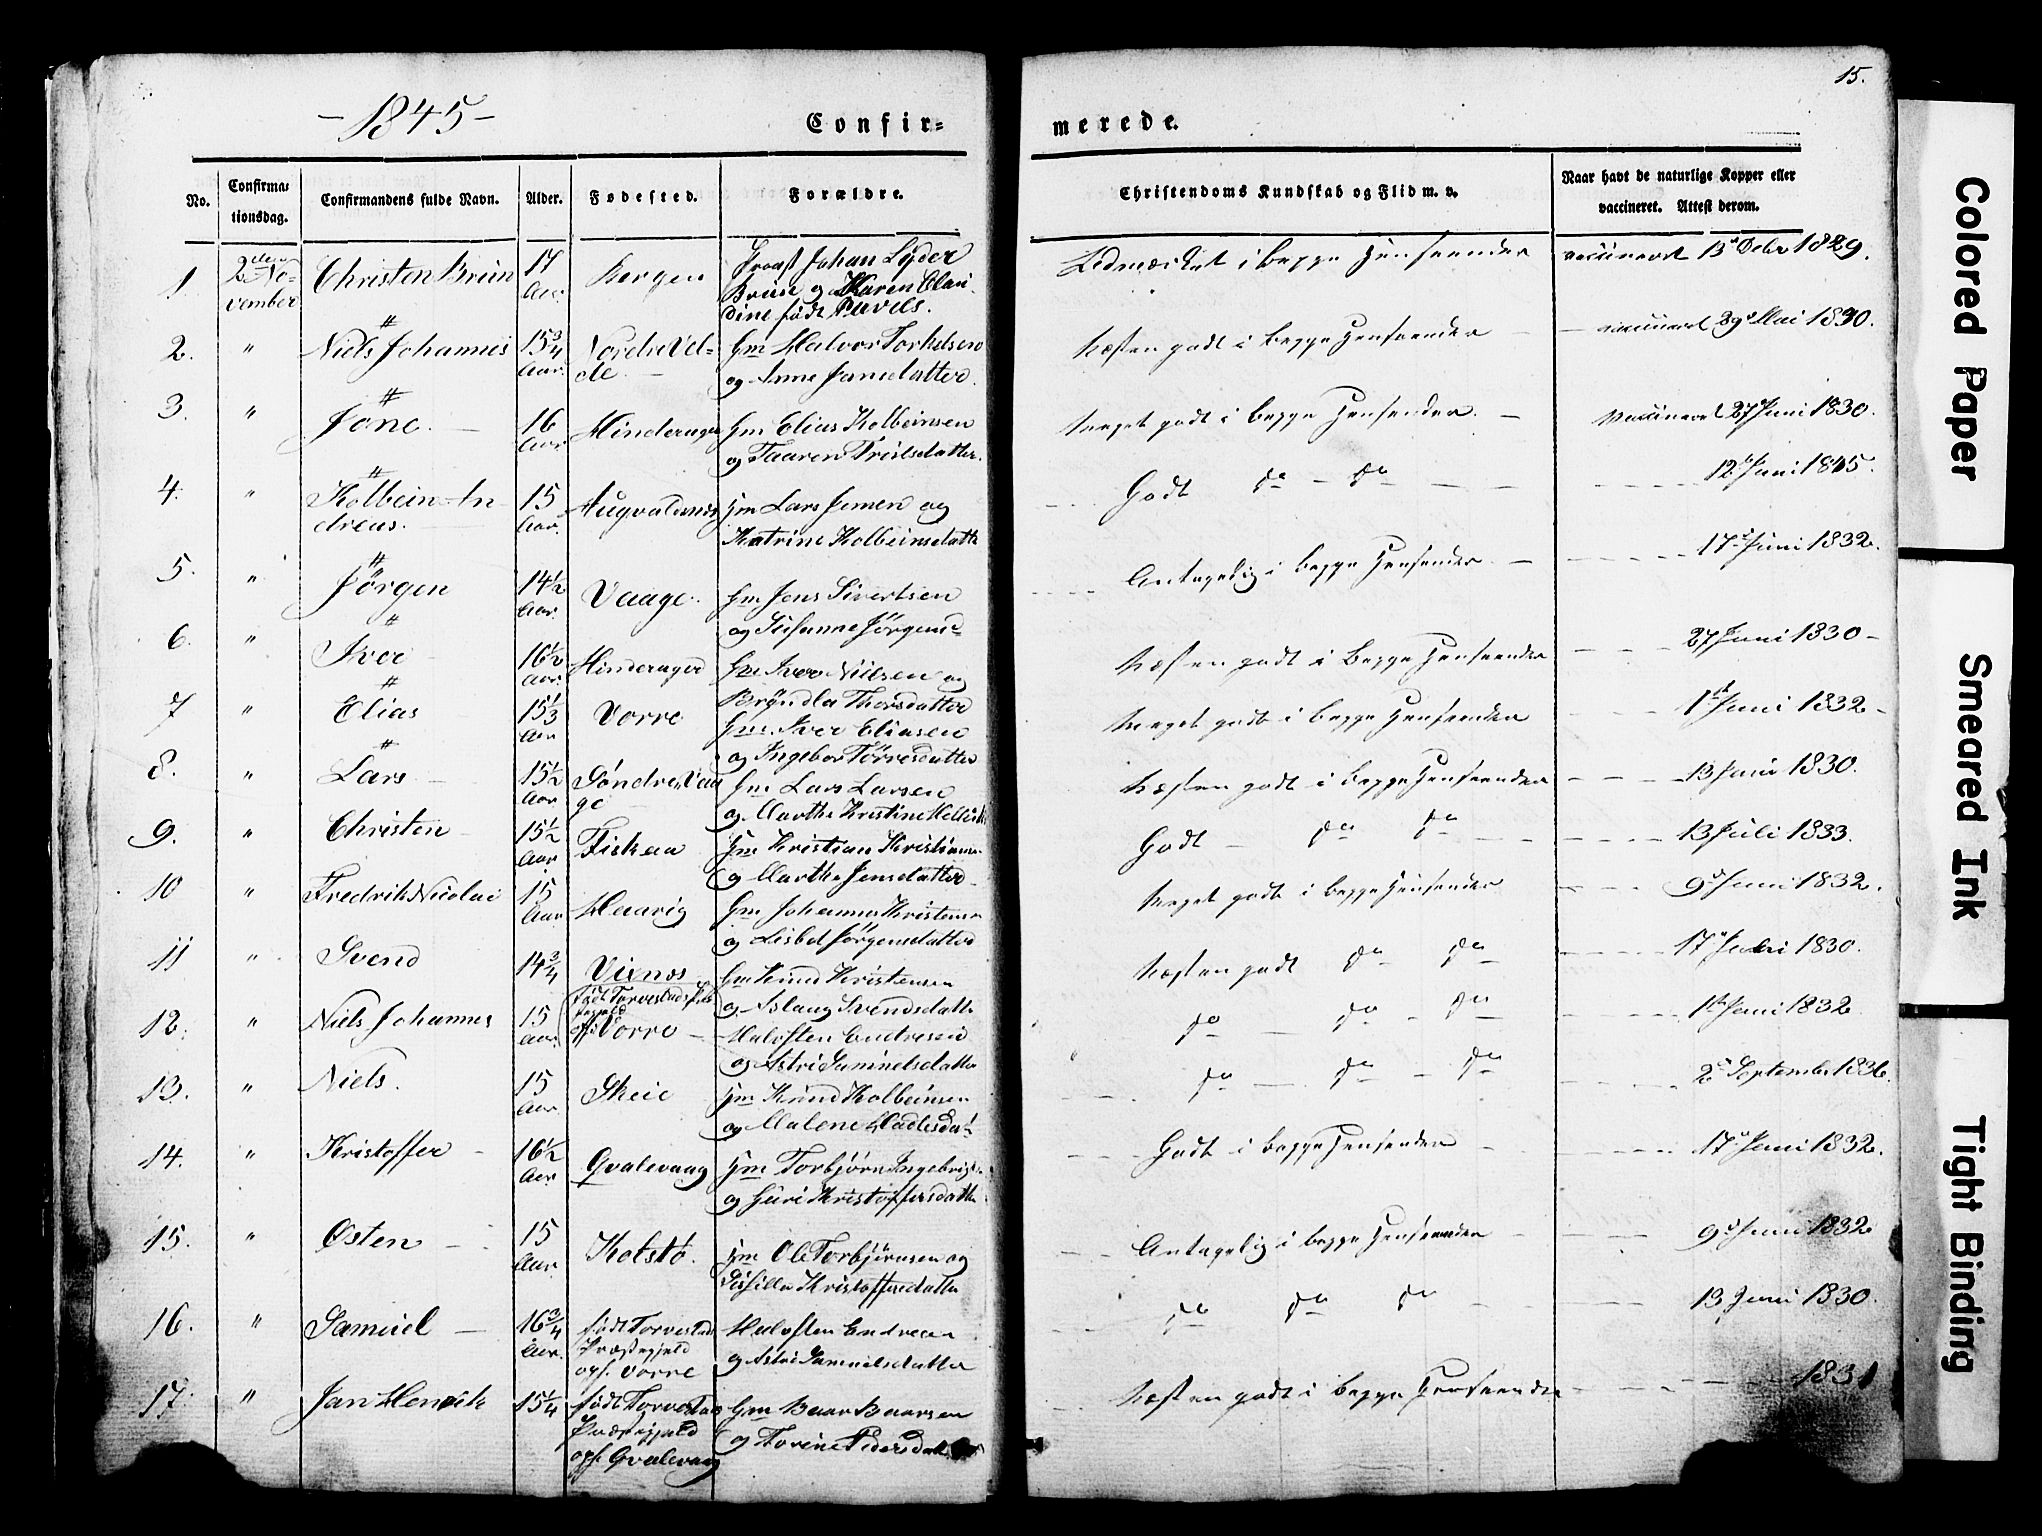 15.
- 1845 -
Confir=
merede.
No.
Confirma=
tionsdag.
Confirmandens fulde Navn.
Alder.
Fødested.
Forældre.
Christendoms Kundskab og Flid m. v.
Naar havt de naturlige Kopper eller
vaccineret. Attest derom.
1.
2den No-
vember
Christen Brun
17
Aar
Bergen
Provst Johan Lyder
Brun og Karen Clau-
dine født Pavels.
Udmærket i begge Henseender
vaccineret 13de Octbr 1829.
2.
"
Niels Johannes
15 3/4
Aar.
Nordre Vel-
de.
Gm Halvor Torkelsen
og Anne Jansdatter.
Næsten godt i begge Henseender
vaccineret 29de Mai 1830.
3.
"
Jone.
16
Aar
Hinderager
Gm Elias Kolbeinsen
og Taaren Trulsdatter.
Meget godt i begge Henseender.
Vaccineret 27 Juni 1830.
4.
"
Kolbein An-
dreas.
15
Aar.
Augvaldsnæs
Gm Lars Jensen og
Katrine Kolbeinsdatter
Godt do - do
12te Juni 1845.
5.
"
Jørgen
14 1/2
Aar.
Vaage.
Gm Jens Sivertsen
og Susanne Jørgensd=
Antagelig i begge Henseender.
17de Juni 1832.
6.
"
Iver
16 1/2
Aar.
Hinderager
Gm Iver Nilsen og
Bryndla Thorsdatter
Næsten godt i begge Henseender
27 Juni 1830 -
7
"
Elias
15 1/3
Aar
Vorre
Gm Iver Eliasen
og Ingebor Tørresdatter
Meget godt i begge Henseender
1ste Juni 1832 -
8.
"
Lars
15 1/2
Aar
Søndre Vaa
ge
Gm Lars Larsen
og Marthe Kristine
Næsten godt i begge Henseender
13 Juni 1830.
9.
"
Christen
15 1/2
Aar
Fiskaa
Gm Kristian Kristiansen
og Marthe Jensdatter
Godt - do do
13 Juli 1833.
10
"
Fredrik Nicolai
15
Aar
Haavig
Gm Johannes Kristensen
og Lisbet Jørgensdatter
Meget godt i begge Henseender
9de Juni 1832.
11
"
Svend
14 3/4
Vixnes
Gm Knud Kristensen
og Aslaug Svendsdatter
Næsten godt do do
17de Juni 1830.
12.
"
Niels Johannes
15
Aar
født Torvestads Præ-
stegjeld
opf: Vorre -
Halvsten Endresen
og Astri Samuelsdatter
do - do - do
1ste Juni 1832
13.
"
Niels.
15
Aar
Skeie
Gm Knud Kolbeinsen
og Malene
do - do - do
2de September 1836.
14.
"
Kristoffer
16 1/2
Aar
Qvalevaag
Gm Torbjørn Ingebrigts-
og Guri Kristoffersdatter
Godt i begge Henseender
17de Juni 1832.
15.
"
Østen
15
Aar.
Kolstø.
Gm Ole Torbjørnsen og
Sissilla Kristoffersdatter
Antagelig i begge Henseender
9de Juni 1832
16.
"
Samuel
16 3/4
Aar.
født Torvestad
Præstegjeld
opf. Vorre
Halvsten Endresen
og Astri Samuelsdatter
do do do
13 Juni 1830.
17.
"
Jan Henrik
15 1/4
født Torvestads
Præstegjeld
opf. Qvalevaag
Gm Baar Baarsen
og Torine
Næsten godt i begge Henseender
1831
Colored Paper
Smeared Ink
Tight Binding